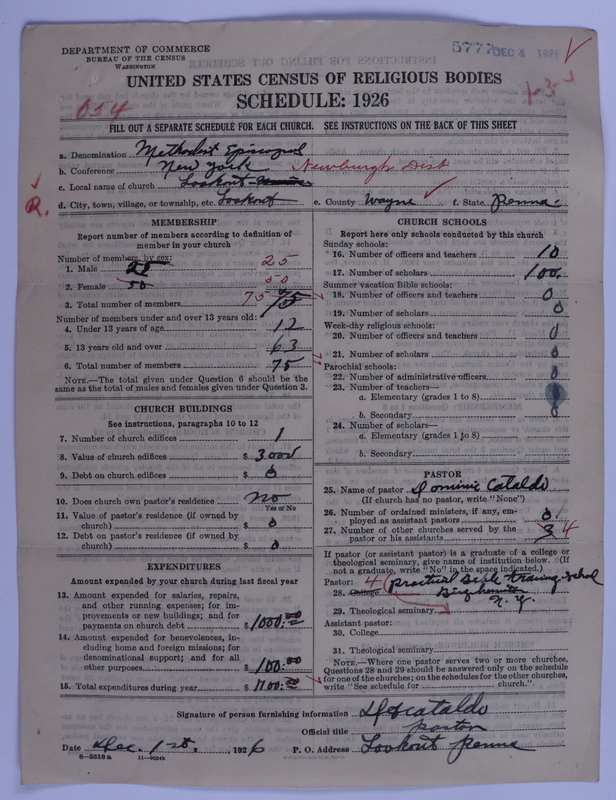 DEPARTMENT OF COMMERCE
BUREAU OF THE CENSUS
WASHINGTON
5777 DEC 4 1926
UNITED STATES CENSUS OF RELIGIOUS BODIES
SCHEDULE: 1926
054
FILL OUT A SEPARATE SCHEDULE FOR EACH CHURCH. SEE INSTRUCTIONS ON THE BACK OF THIS SHEET
a. Denomination Methodist Episcopal
b. Conference New York Newburgh Dist
c. Local name of church Lookout
d. City, town, village, or township, etc. Lookout e. County Wayne f. State Penna.
R.
MEMBERSHIP
Report number of members according to definition of
member in your church
Number of members by sex:
1. Male 25 25
2. Female 50 50
3. Total number of members 75 75
Number of members under and over 13 years old:
4. Under 13 years of age 12
5. 13 years old and over 63
6. Total number of members 75
NOTE.—The total given under Question 6 should be the
same as the total of males and females given under Question 3.
CHURCH BUILDINGS
See instructions, paragraphs 10 to 12
7. Number of church edifices 1
8. Value of church edifices $ 3000
9. Debt on church edifices $ 0
10. Does church own pastor's residence No
Yes or No
11. Value of pastor's residence (if owned by
church) $ 0
12. Debt on pastor's residence (if owned by
church) $ 0
EXPENDITURES
Amount expended by your church during last fiscal year
13. Amount expended for salaries, repairs,
and other running expenses; for im-
provements or new buildings; and for
payments on church debt $ 1000.00
14. Amount expended for benevolences, in-
cluding home and foreign missions; for
denominational support; and for all
other purposes $ 100.00
15. Total expenditures during year $ 1100.00
CHURCH SCHOOLS
Report here only schools conducted by this church
Sunday schools:
16. Number of officers and teachers 10
17. Number of scholars 100.
Summer vacation Bible schools:
18. Number of officers and teachers 0
19. Number of scholars 0
Week-day religious schools:
20. Number of officers and teachers 0
21. Number of scholars 0
Parochial schools:
22. Number of administrative officers 0
23. Number of teachers—
a. Elementary (grades 1 to 8)
b. Secondary 0
24. Number of scholars—
a. Elementary (grades 1 to 8)
b. Secondary
PASTOR
25. Name of pastor Dominic Cataldo
(If church has no pastor, write "None")
26. Number of ordained ministers, if any, em-
ployed as assistant pastors 0
27. Number of other churches served by the
pastor or his assistants 3 4
If pastor (or assistant pastor) is a graduate of a college or
theological seminary, give name of institution below. (If
not a graduate, write "No" in the space indicated.)
Pastor: 4 Practical Bible Training School
28. College Binghamton
N. Y.
29. Theological seminary
Assistant pastor:
30. College
31. Theological seminary
NOTE.—Where one pastor serves two or more churches,
Questions 28 and 29 should be answered only on the schedule
for one of the churches; on the schedules for the other churches,
write "See schedule for church."
Signature of person furnishing information D Cataldo
Official title pastor
Date Dec. 1st, 1926 P. O. Address Lookout Penna
8-5518a 11-9024b